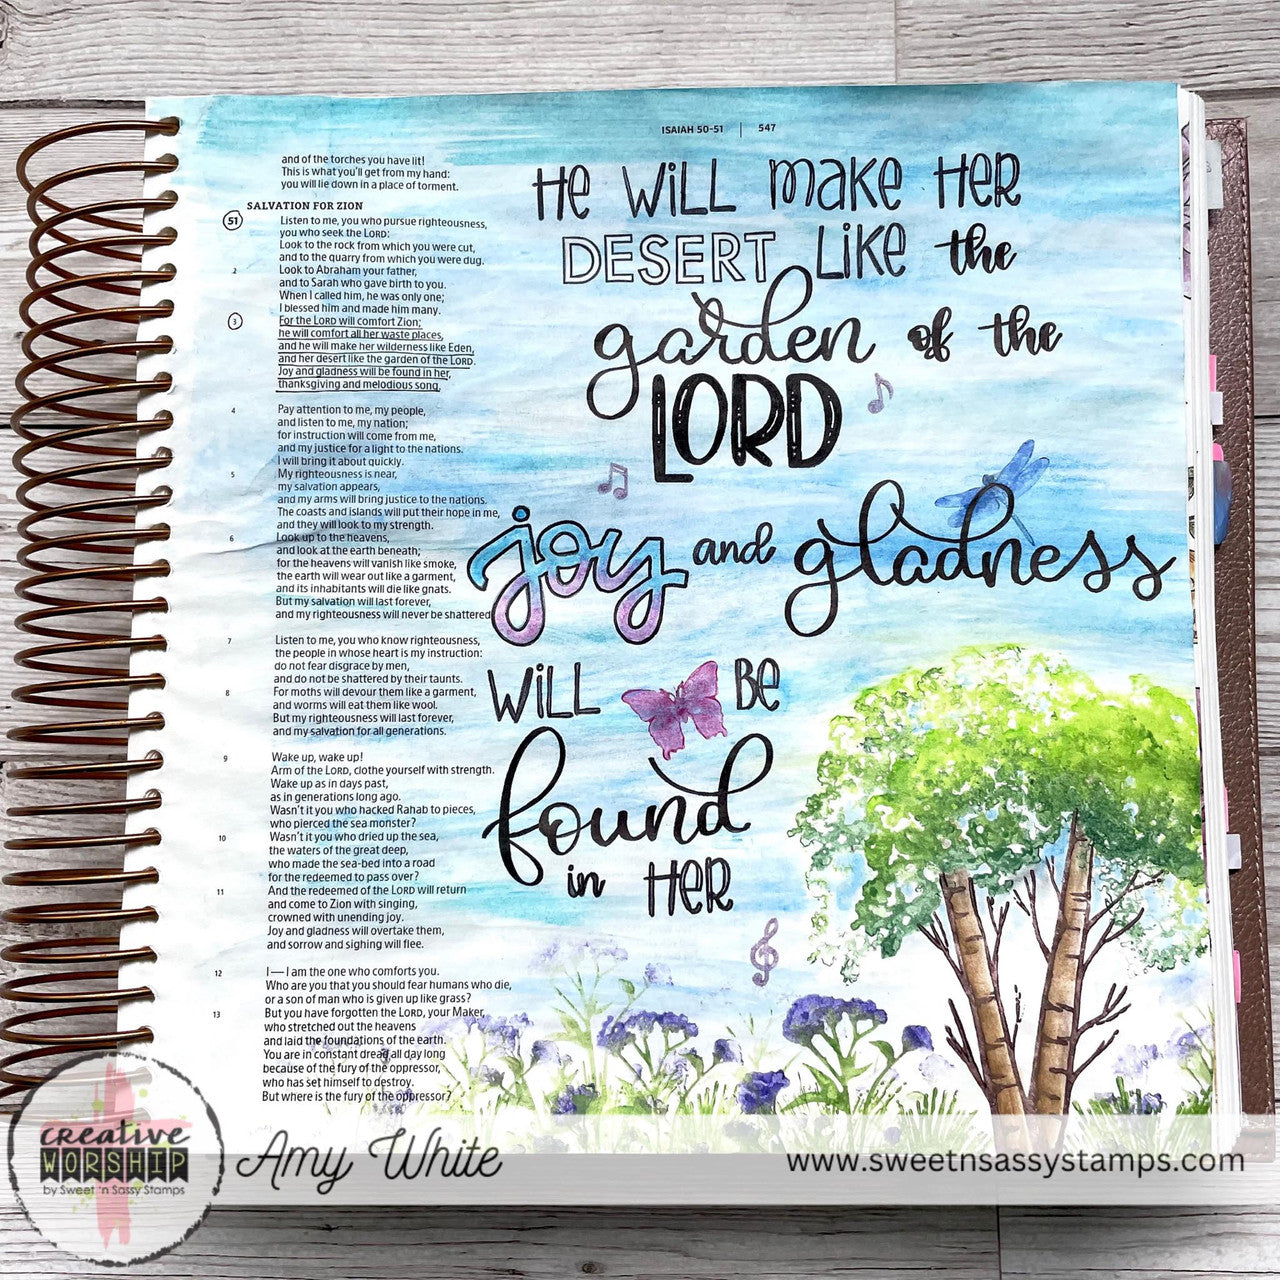 ISAIAH 50-51 | 547
and of the torches you have lit!
This is what you'll get from my hand:
you will lie down in a place of torment.
SALVATION FOR ZION
51 Listen to me, you who pursue righteousness,
you who seek the LORD:
Look to the rock from which you were cut,
and to the quarry from which you were dug.
2 Look to Abraham your father,
and to Sarah who gave birth to you.
When I called him, he was only one;
I blessed him and made him many.
3 For the LORD will comfort Zion;
he will comfort all her waste places,
and he will make her wilderness like Eden,
and her desert like the garden of the LORD.
Joy and gladness will be found in her,
thanksgiving and melodious song.
4 Pay attention to me, my people,
and listen to me, my nation;
for instruction will come from me,
and my justice for a light to the nations.
I will bring it about quickly.
5 My righteousness is near,
my salvation appears,
and my arms will bring justice to the nations.
The coasts and islands will put their hope in me,
and they will look to my strength.
6 Look up to the heavens,
and look at the earth beneath;
for the heavens will vanish like smoke,
the earth will wear out like a garment,
and its inhabitants will die like gnats.
But my salvation will last forever,
and my righteousness will never be shattered.
7 Listen to me, you who know righteousness,
the people in whose heart is my instruction:
do not fear disgrace by men,
and do not be shattered by their taunts.
8 For moths will devour them like a garment,
and worms will eat them like wool.
But my righteousness will last forever,
and my salvation for all generations.
9 Wake up, wake up!
Arm of the LORD, clothe yourself with strength.
Wake up as in days past,
as in generations long ago.
Wasn't it you who hacked Rahab to pieces,
who pierced the sea monster?
10 Wasn't it you who dried up the sea,
the waters of the great deep,
who made the sea-bed into a road
for the redeemed to pass over?
11 And the redeemed of the LORD will return
and come to Zion with singing,
crowned with unending joy.
Joy and gladness will overtake them,
and sorrow and sighing will flee.
12 I — I am the one who comforts you.
Who are you that you should fear humans who die,
or a son of man who is given up like grass?
13 But you have forgotten the LORD, your Maker,
who stretched out the heavens
and laid the foundations of the earth.
You are in constant dread all day long
because of the fury of the oppressor,
who has set himself to destroy.
But where is the fury of the oppressor?
He WiLL make Her
DESERT Like the
garden of the
LORD
joy and gladness
WiLL Be
found
in Her
creative
WORSHIP
by Sweet 'n Sassy Stamps
Amy White
www.sweetnsassystamps.com